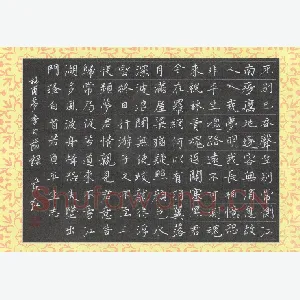 死別已吞聲生別常惻江
南瘴癘地逐客無消息故
人入我夢明我長相憶恐
非平生魂路遠不可測魂
來楓林青魂返關塞黑君
今在羅網何以有羽翼落
月滿屋梁猶疑照顏色水
深波浪闊無使蛟龍得浮
雲終日行游子久不至三
夜頻夢君情親見君意告
歸常局促苦道來不易江
湖多風波舟楫恐失墜出
門搔白首若負平生志
杜甫夢李白